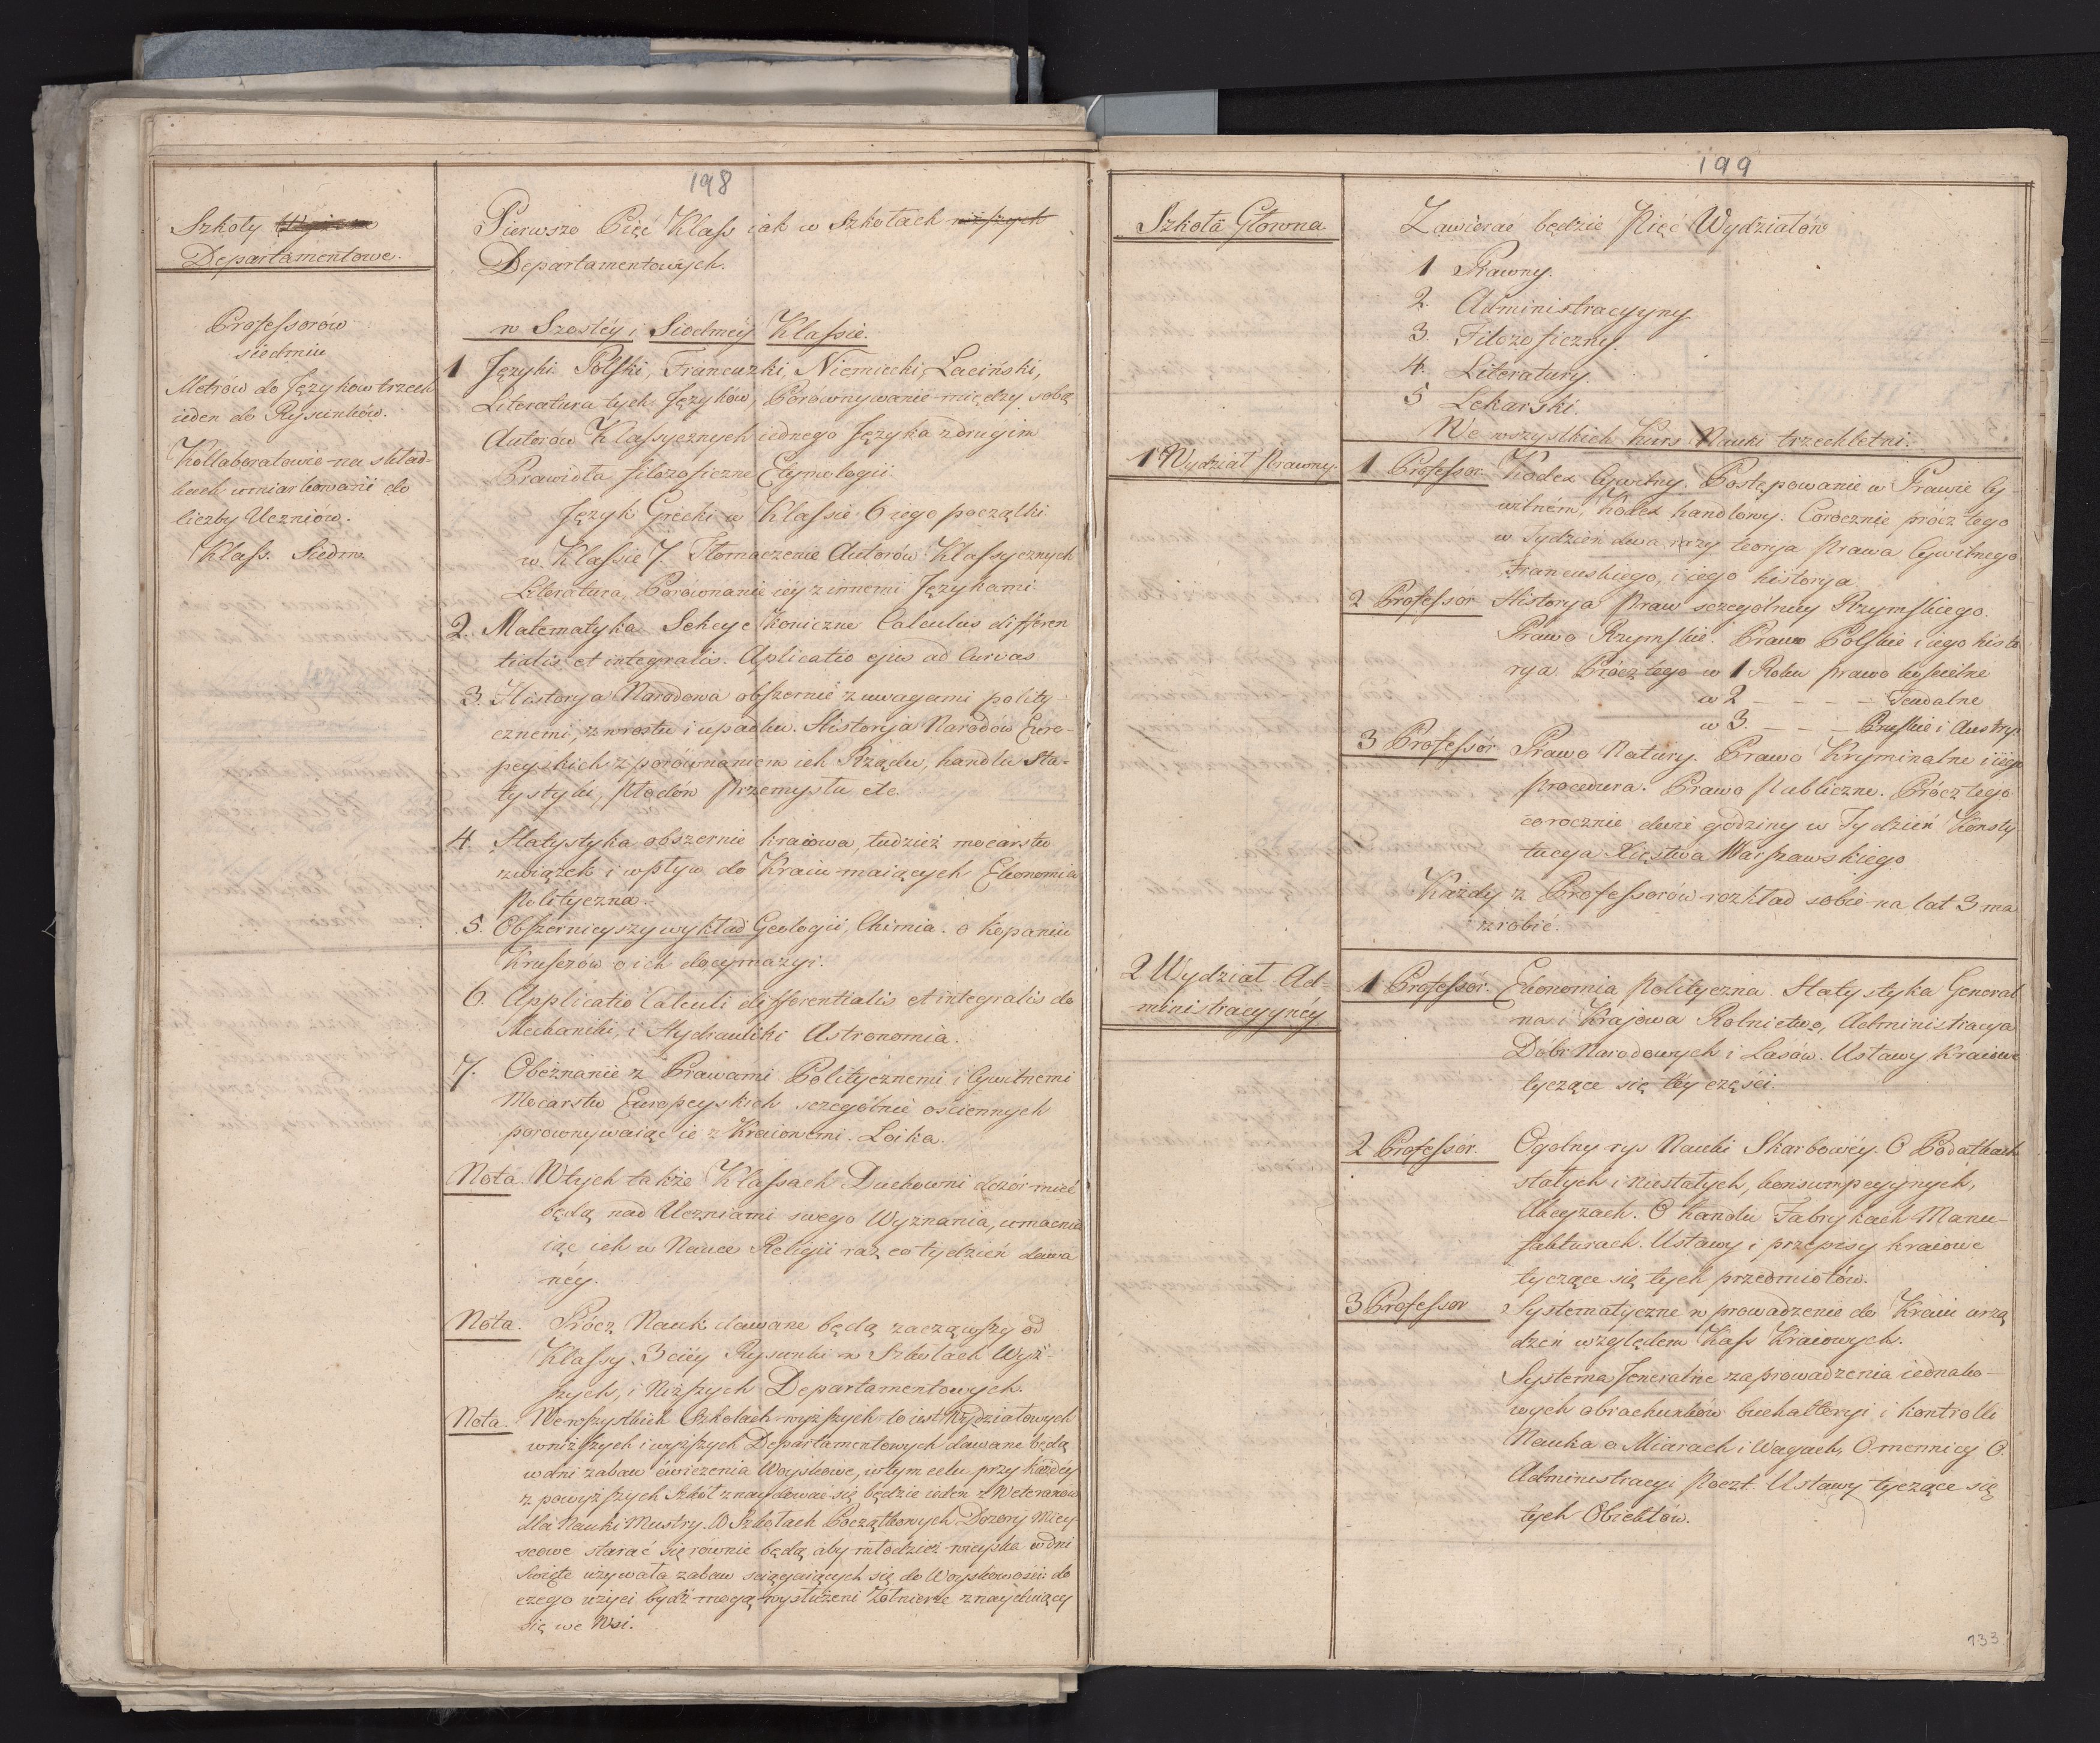 198
Szkoły Wyższe
Departamentowe.
Professorów
siedmiu
Metrów do Języków trzech
ieden do Rysunków.
Kollaboratowie na skład-
kach umiarkowanii do
liczby Uczniów.
Klass. Siedm.
Pierwsze Pięć Klass iak w Szkołach niższych
Departamentowych.
w Szostéy i Siodmey Klassie.
1 Języki Polski, Francuzki, Niemiecki, Łaciński,
Literatura tych Języków, Porównywanie między sobą
Autorów Klassycznych iednego Języka z drugim
Prawidła filozoficzne Etymologii
Język Grecki w Klassie 6 iego początki
w Klassie 7. Tłomaczenie Autorów Klassycznych
Literatura, Porównanie iéy z innemi Językami.
2. Matematyka Sekcye Koniczne Calculus differen
tialis et integralis. Aplicatio ejus ad Curvas
3. Historya Narodowa obszernie z uwagami polity-
cznemi, z wrostu i upadku. Historya Narodów Euro-
peyskich z porównaniem ich Rządu, handlu Sta-
tystyki, Płodów Przemysłu etc.
4. Statystyka obszernie kraiowa, tudzież mocarstw
związek i wpływ do Kraiu maiących Ekonomia
Polityczna.
5. Obszernieyszy wykład Geologii, Chimia. o Kopaniu
Kruszców o ich docymazyi.
6. Applicatio Calculi differentialis et integralis do
Mechaniki, i Hydrauliki Astronomia.
7. Obeznanie z Prawami Politycznemi i Cywilnemi
Mocarstw Europeyskich szczególnie ościennych
porownywaiąc ie z Kraiowemi. Loika.
Nota. W tych także Klassach Duchowni dozór mieć
będą nad Uczniami swego Wyznania, umacnia
iąc ich w Nauce Religii raz co tydzień dawa
néy.
Nota. Prócz Nauk dawane będą zacząwszy od
Klassy 3ciéy Rysunki w Szkołach Wyż-
szych, i Niższych Departamentowych.
Nota. We wszystkich Szkołach wyższych to iest Wydziałowych
w niższych i wyższych Departamentowych dawane będą
w dni zabaw ćwiczenia Woyskowe, w tym celu przy każdéy
z powyższych Szkół znaydować się będzie ieden z Weteranów
dla Nauki Mustry. W Szkołach Początkowych Dozory Miey-
scowe starać się rownie będą aby młodzież wieyska w dni
święte używała zabaw sciągaiących się do Woyskowości: do
czego użyci bydź mogą wysłużeni Żołnierze znayduiący
się we Wsi.
199
Szkoła Głowna
Zawierać będzie Pięć Wydziałów
1 Prawny.
2. Administracyyny
3. Filozoficzny.
4. Literatury.
5 Lekarski.
We wszystkich Kurs Nauki trzechletni.
1 Wydział Prawny.
1 Professor Kodex Cywilny. Postępowanie w Prawie Cy-
wilném, Kodex handlowy. Corocznie prócz tego
w Tydzień dwa razy teorya Prawa Cywilnego
Francuskiego, i iego historya
2 Professor Historya Praw szczególniey Rzymskiego.
Prawo Rzymskie. Prawo Polskie i iego histo
rya Prócz tego w 1 Roku prawo kościelne
w 2 - - - - Feudalne
w 3. - - - Pruskie i Austry.
3 Professor Prawo Natury. Prawo Kryminalne i iego
procedura. Prawo Publiczne. Prócz tego
corocznie dwie godziny w Tydzień Konsty
tucya Xięstwa Warszawskiego
Każdy z Professorów rozkład sobie na lat 3 ma
zrobić.
2 Wydział Ad-
ministracyyny
1 Professor. Ekonomia Polityczna Statystyka General
na i Krajowa Rolnictwo, Administracya
Dóbr Narodowych i Lasów. Ustawy Kraiowe
tyczące się téy części.
2 Professor. Ogolny rys Nauki Skarbowéy. O Podatkach
stałych i niestałych, konsumpcyynych,
Akcyzach. O handlu Fabrykach Manu-
fakturach. Ustawy i przepisy kraiowe
tyczące się tych przedmiotów.
3 Professor Systematyczne wprowadzenie do Kraiu urzą
dzeń względem Kass Kraiowych.
Systema Jeneralne zaprowadzenia iednako-
wych obrachunków buchalteryi i kontrolli
Nauka o Miarach i Wagach, O mennicy O.
Administracyi Poczt. Ustawy tyczące się
tych Obiektów.
133